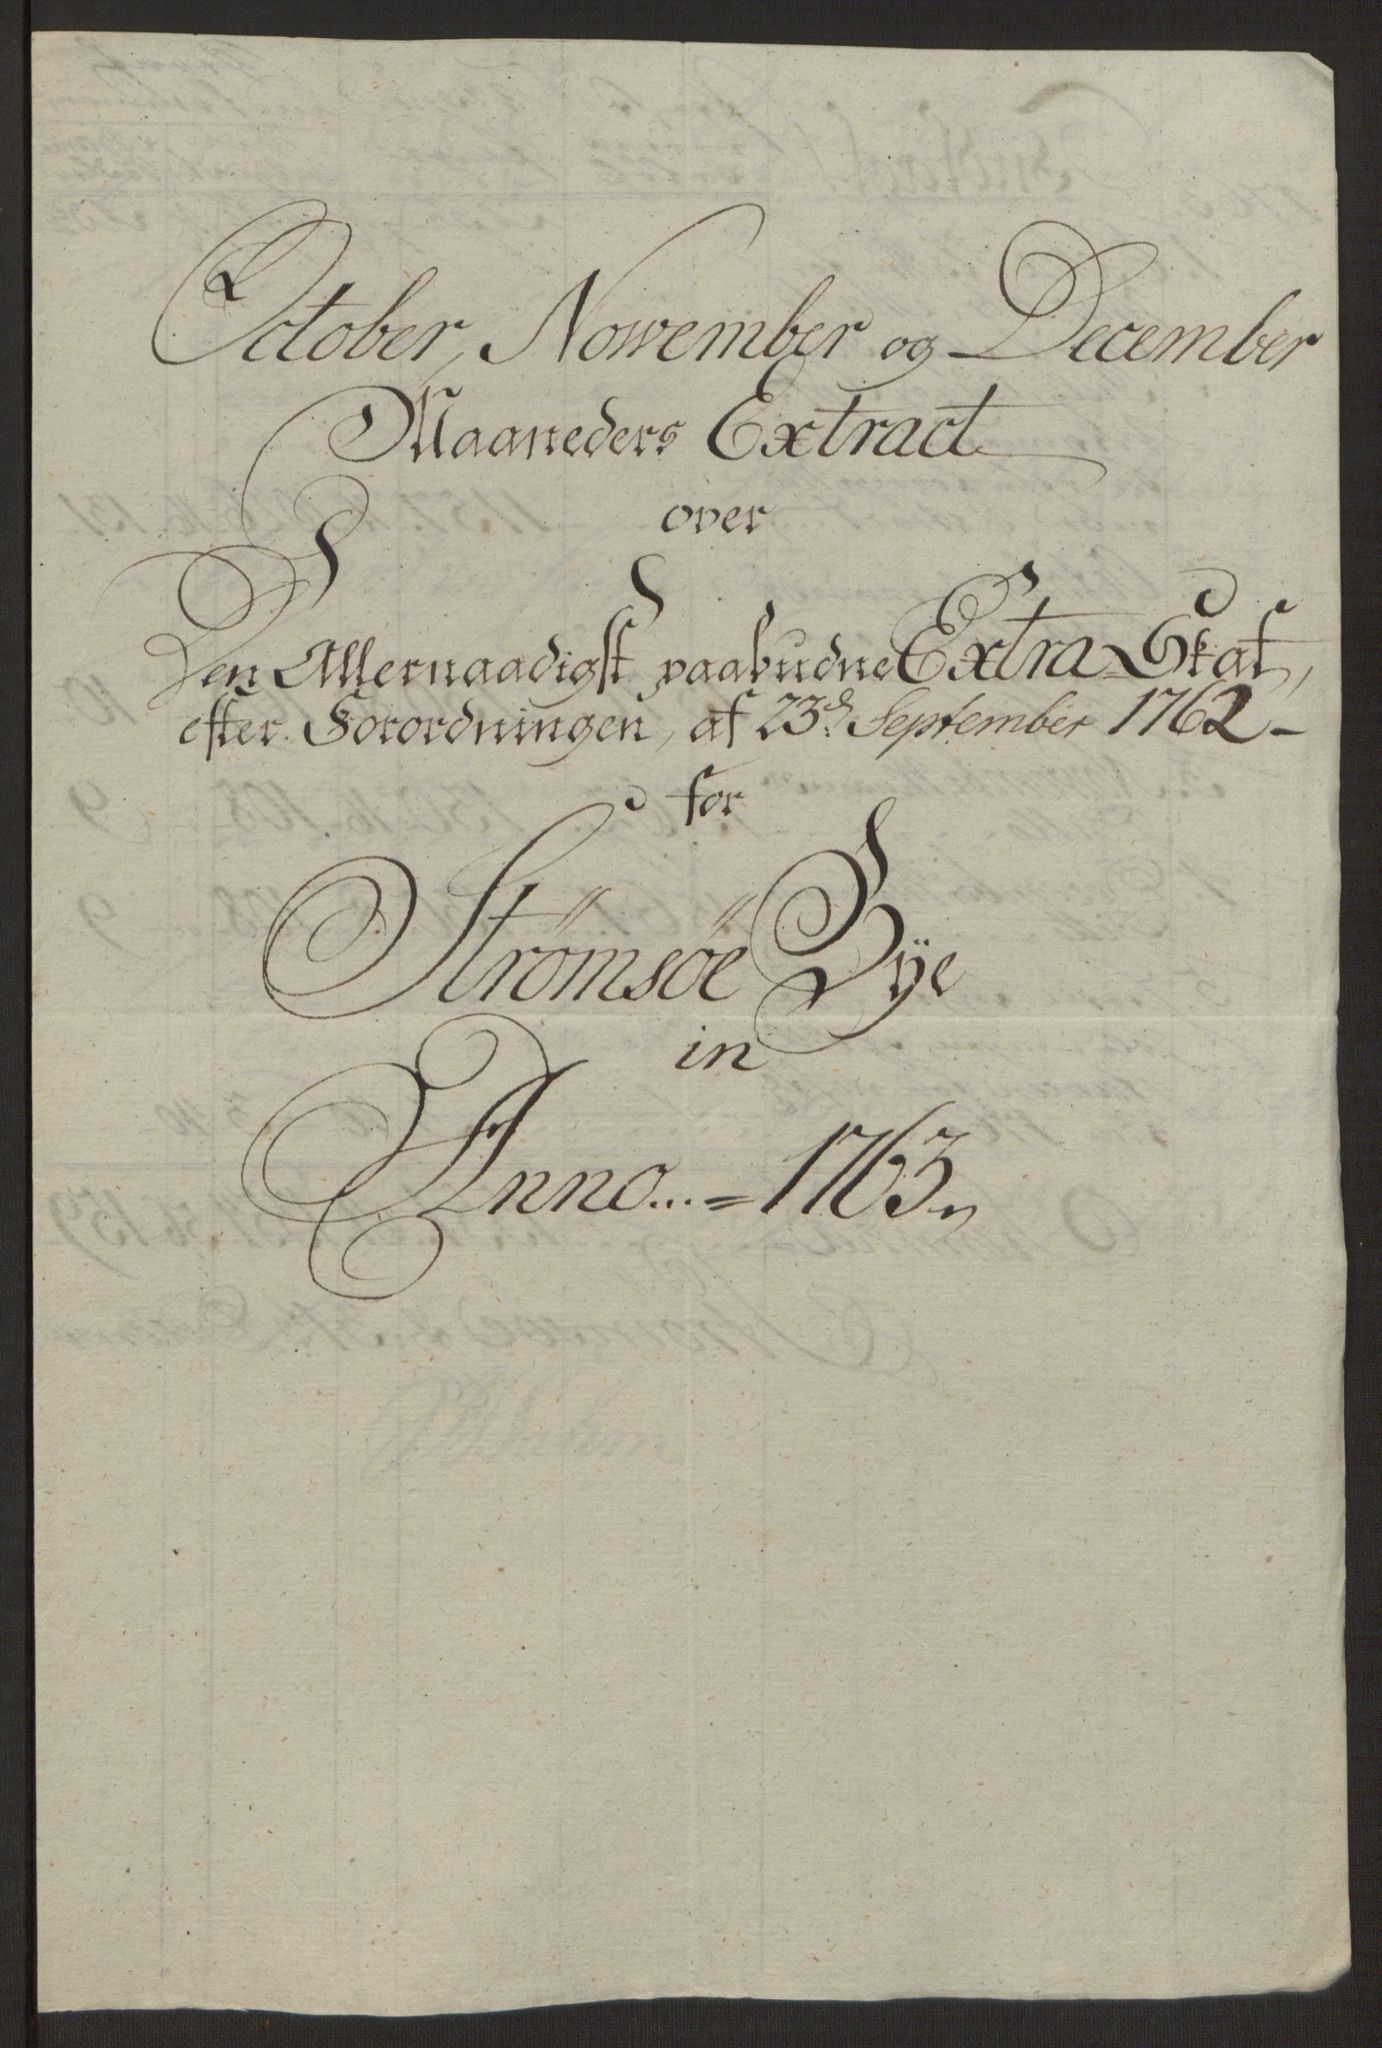 October, Nowember og December
Maaneders Extract
over
Den Allernaadigst paabudne Extra Skat,
efter Forordningen, af 23d. September 1762
for
Strømsøe Bÿe
in
Anno...=1763